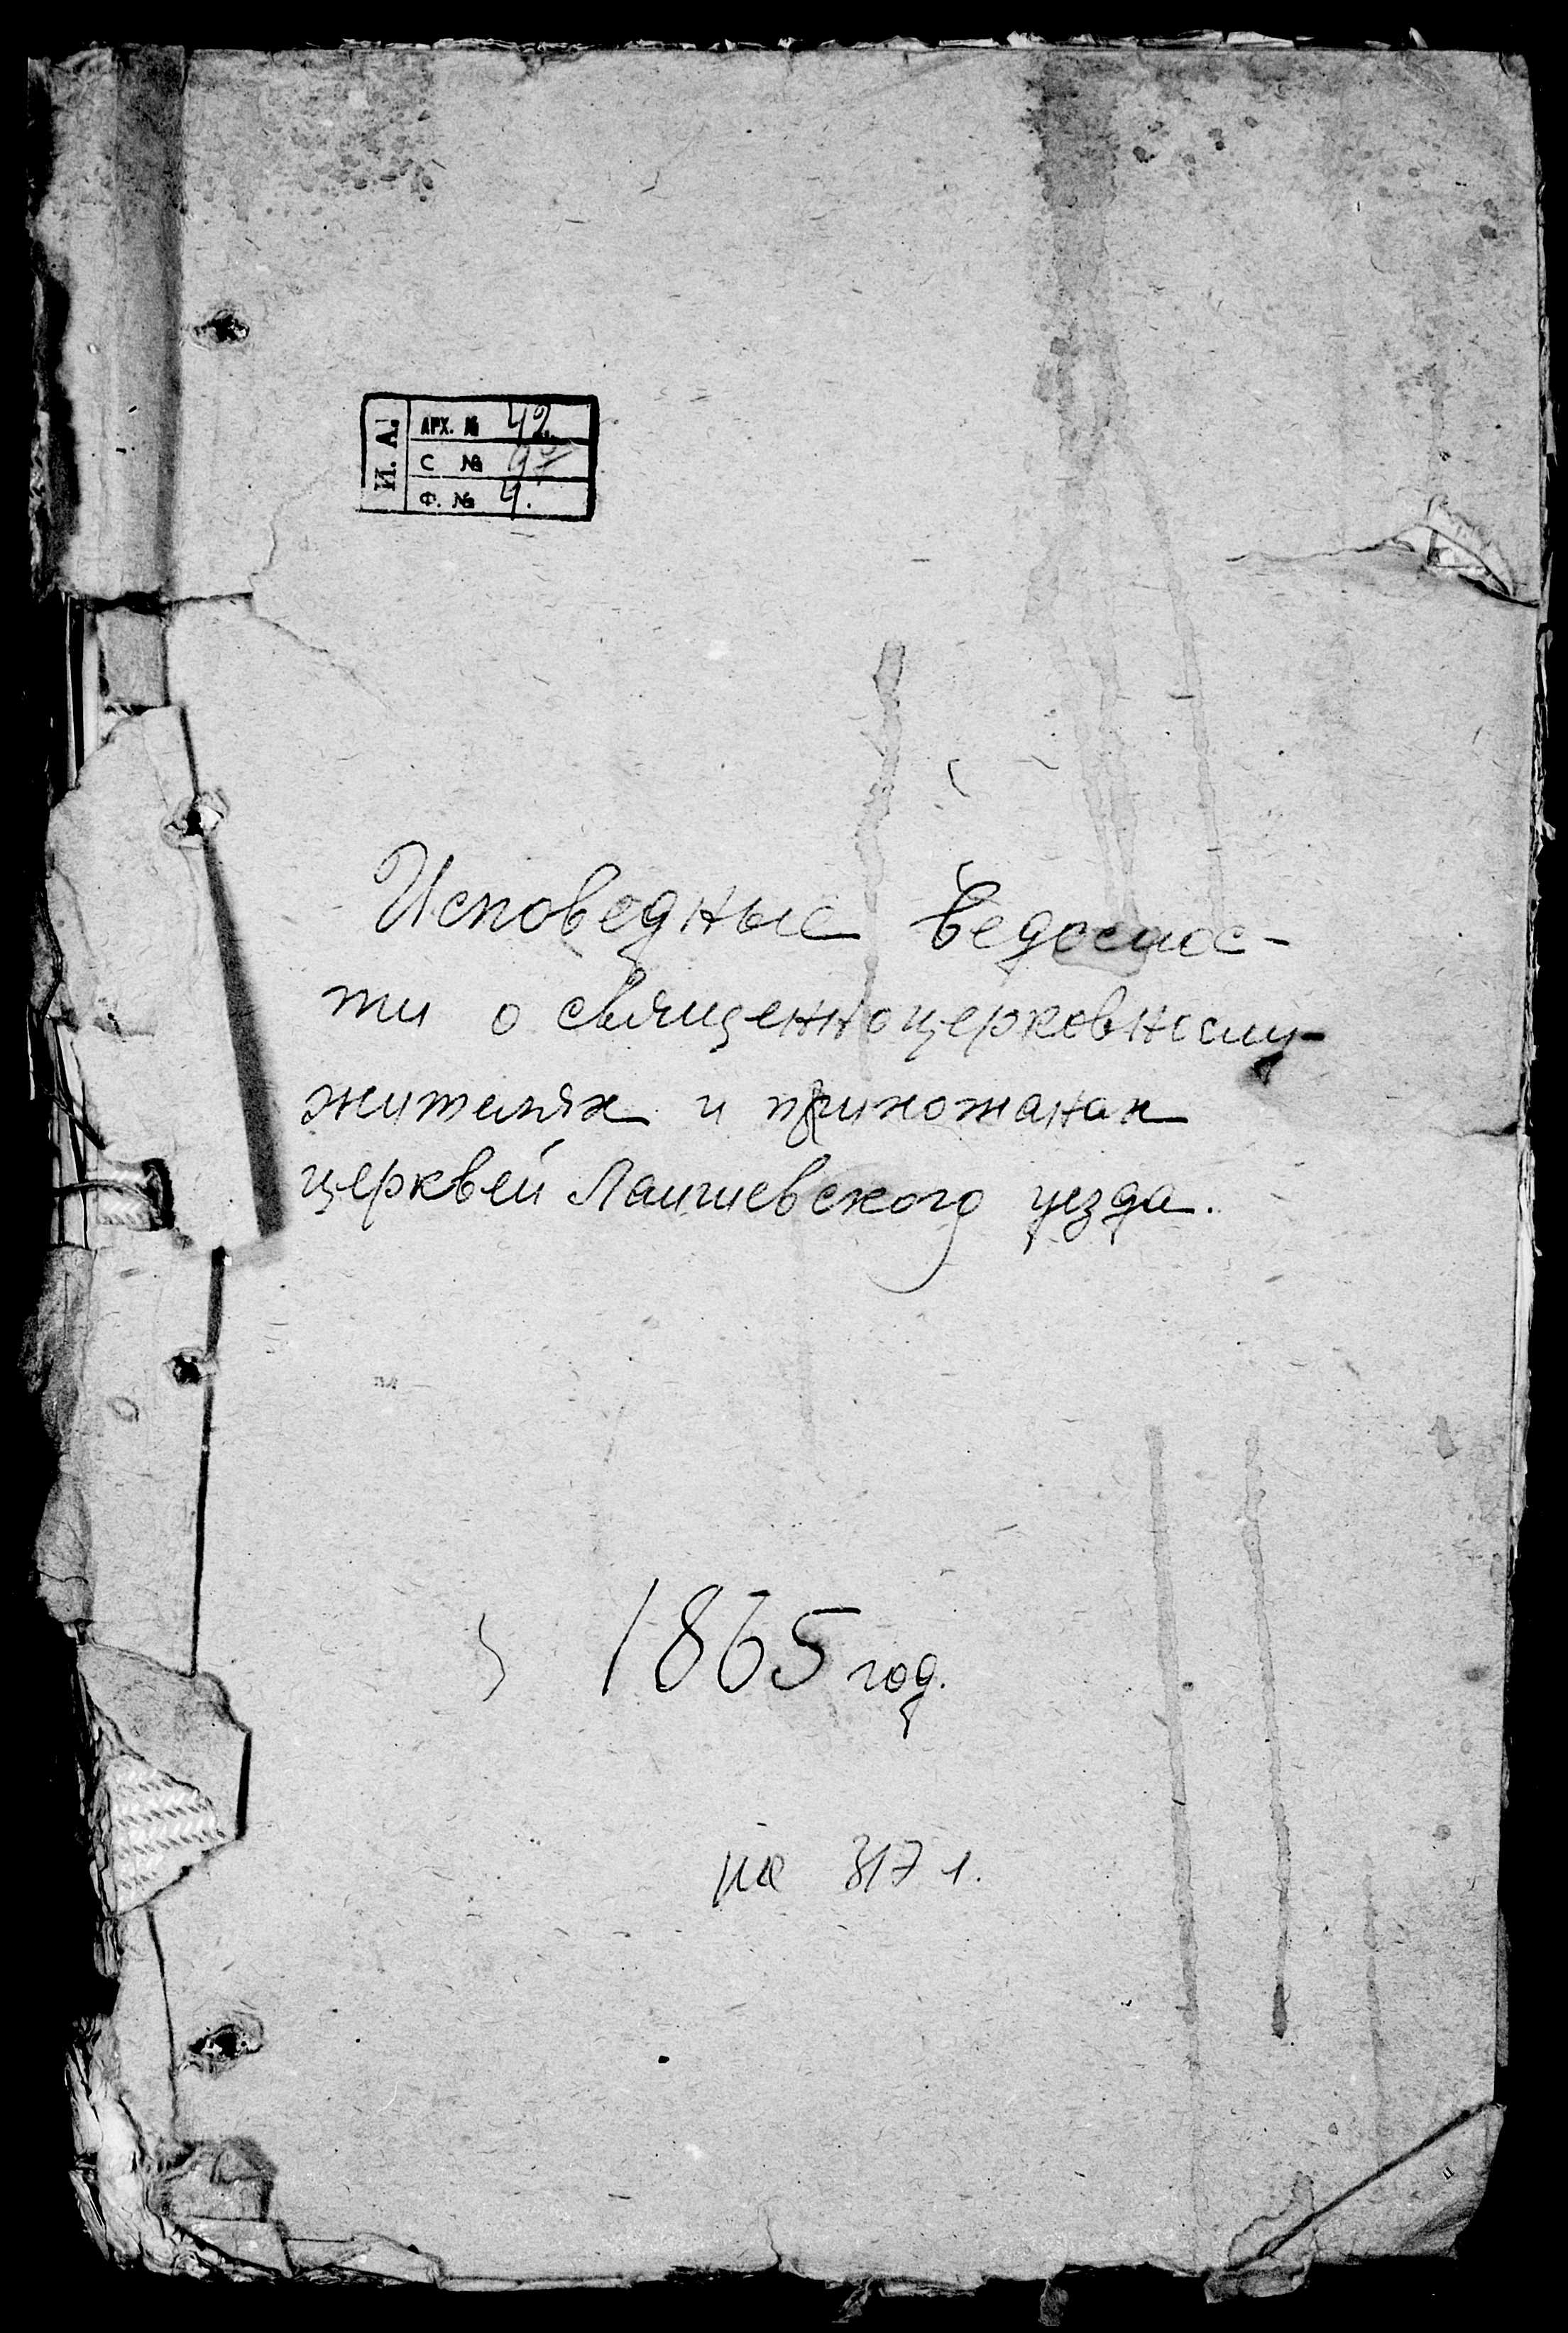 И. А.
АРХ. № 42
С №
Ф. № 4.
Исповедные ведомос-
ти о священноцерковнослу-
жителях и прихожанах
церквей Лаишевского уезда.
1865 год.
на 317 л.